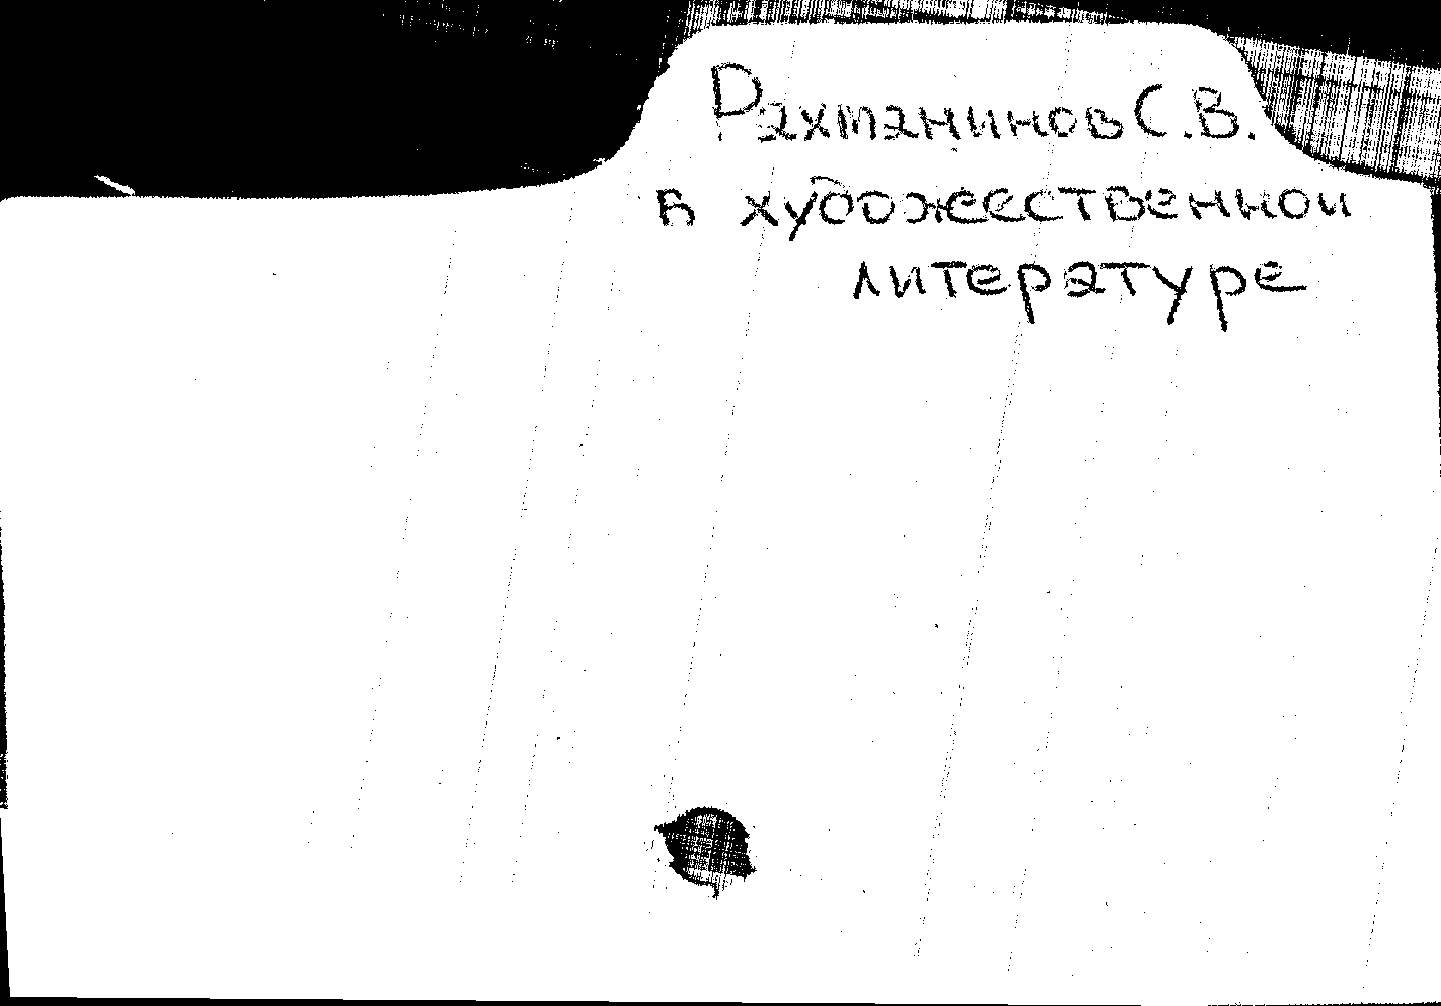 Рахманинов С.В.
в художественной
литературе